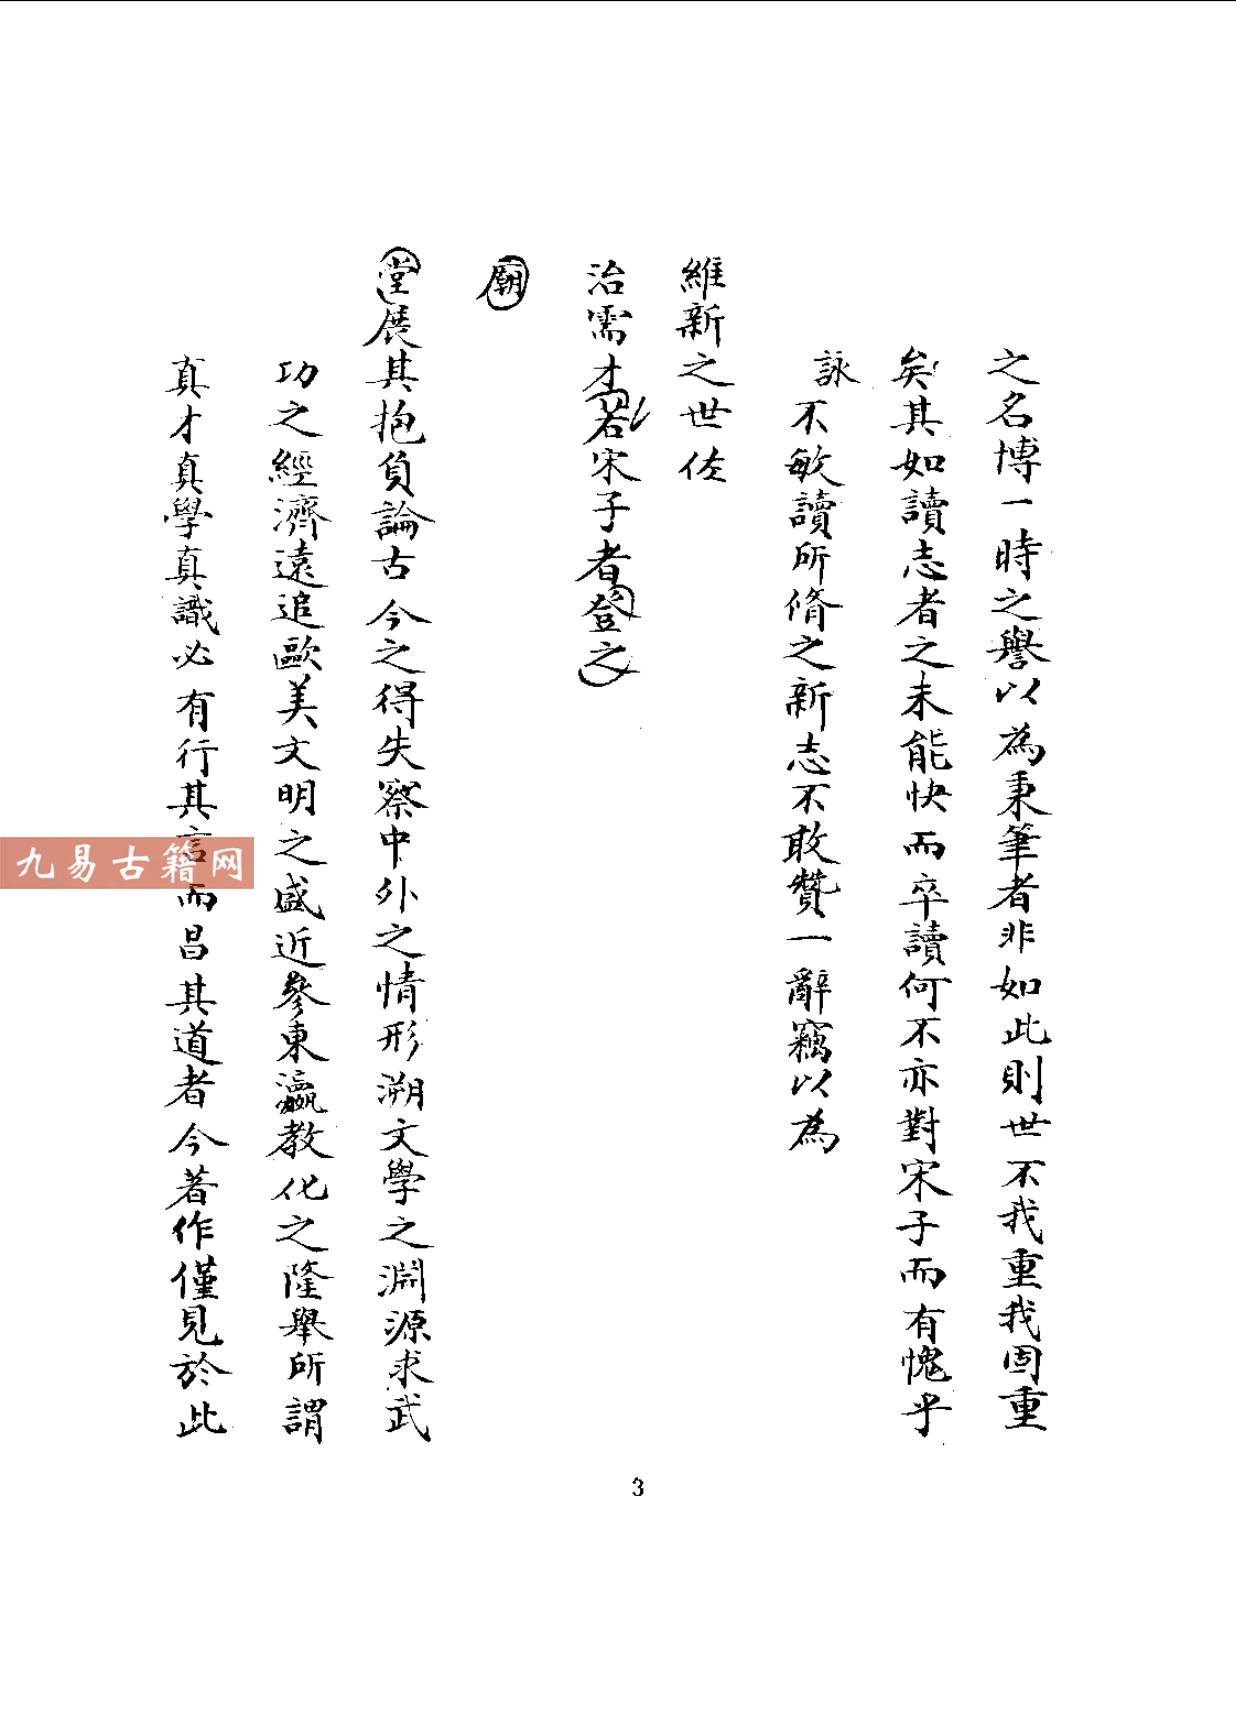 之名博一時之譽以為秉筆者非如此則世不我重我固重
矣其如讀志者之未能快而卒讀何不亦對宋子而有愧乎
詠不敏讀所脩之新志不敢贊一辭竊以為
維新之世佐
治需才若宋子者登之
廟
堂展其抱負論古今之得失察中外之情形溯文學之淵源求武
功之經濟遠追歐美文明之盛近參東瀛教化之隆舉所謂
真才真學真識必有行其言而昌其道者今著作僅見於此
九易古籍网
3